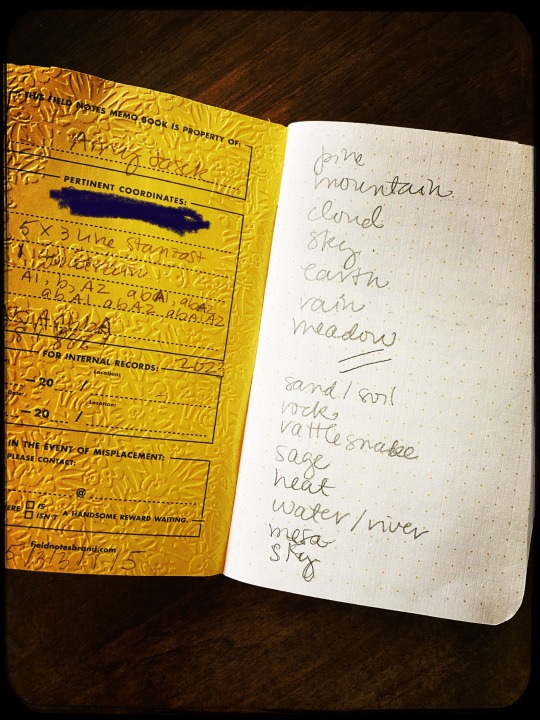 THIS FIELD NOTES MEMO BOOK IS PROPERTY OF:
Amy
PERTINENT COORDINATES:
5 x 3 line stanzas
A1, b, A2 abA1, abA2
abA1 abA2 abA1A2
FOR INTERNAL RECORDS:
Location:
- 20 /
Location:
- 20 /
IN THE EVENT OF MISPLACEMENT:
PLEASE CONTACT:
@
IS
ISN'T A HANDSOME REWARD WAITING.
fieldnotesbrand.com
pine
mountain
cloud
sky
earth
rain
meadow
sand/soil
rock
rattlesnake
sage
heat
water/river
mesa
sky